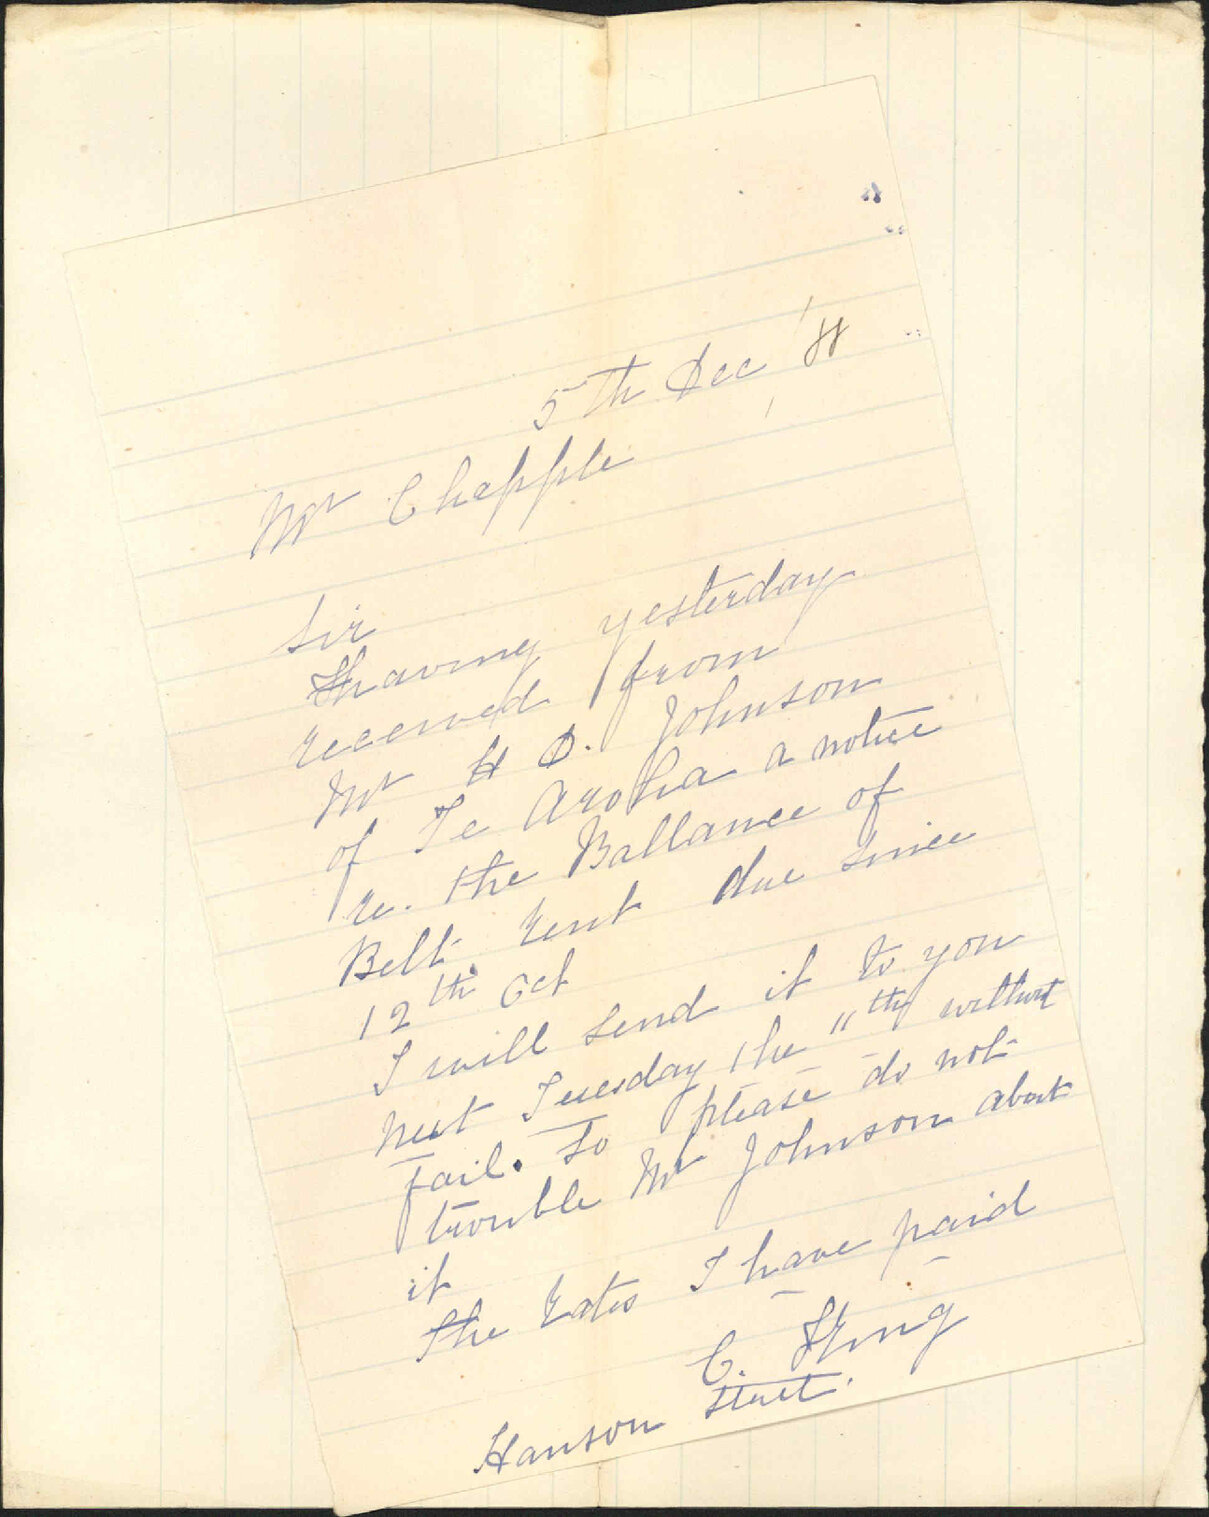 5th Dec
Mr Chapple
Sir
Having yesterday
received from
Mr H D. Johnson
of Te Aroha a notice
re. the Ballance of
Belt. rent due since
12th Oct
I will send it to you
next Tuesday the 11th without
fail. So please do not
trouble Mr Johnson about
it
The rates I have paid
C. King
Hanson Street.